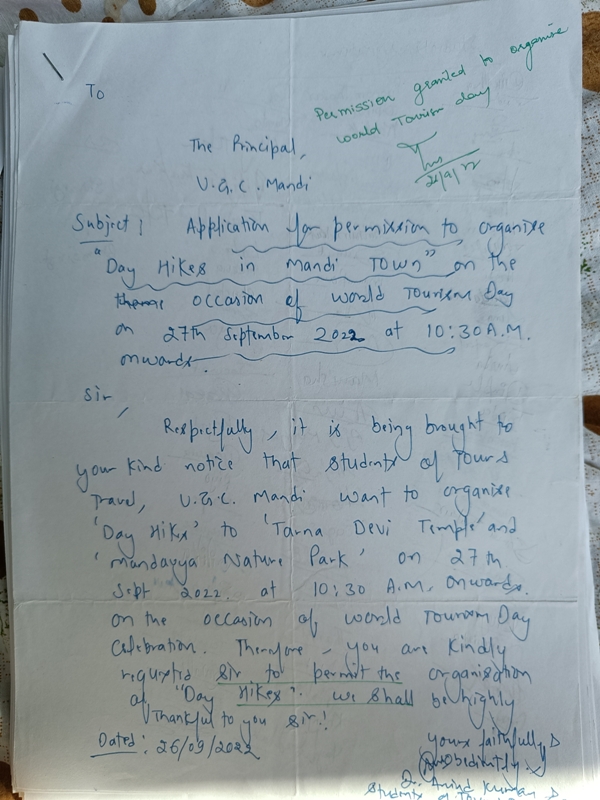 To
Permission granted to organise
world Tourism day
The Principal,
V.G.C. Mandi
Subject: Application for permission to organise
"Day Hikes in Mandi Town" on the
theme occasion of world Tourism Day
on 27th September 2022 at 10:30 A.M.
onwards.
Sir,
Respectfully, it is being brought to
your kind notice that students of Tours
Travel, V.G.C. Mandi want to organise
'Day Hikes' to 'Tarna Devi Temple' and
'Mandavya Nature Park' on 27th
Sept 2022. at 10:30 A.M. onwards.
on the occasion of world Tourism Day
Celebration. Therefore, you are kindly
requested sir to permit the organisation
of "Day Hikes". We shall be highly
Thankful to you sir!
Dated: 26/09/2022
yours faithfully &
obediently
Students of